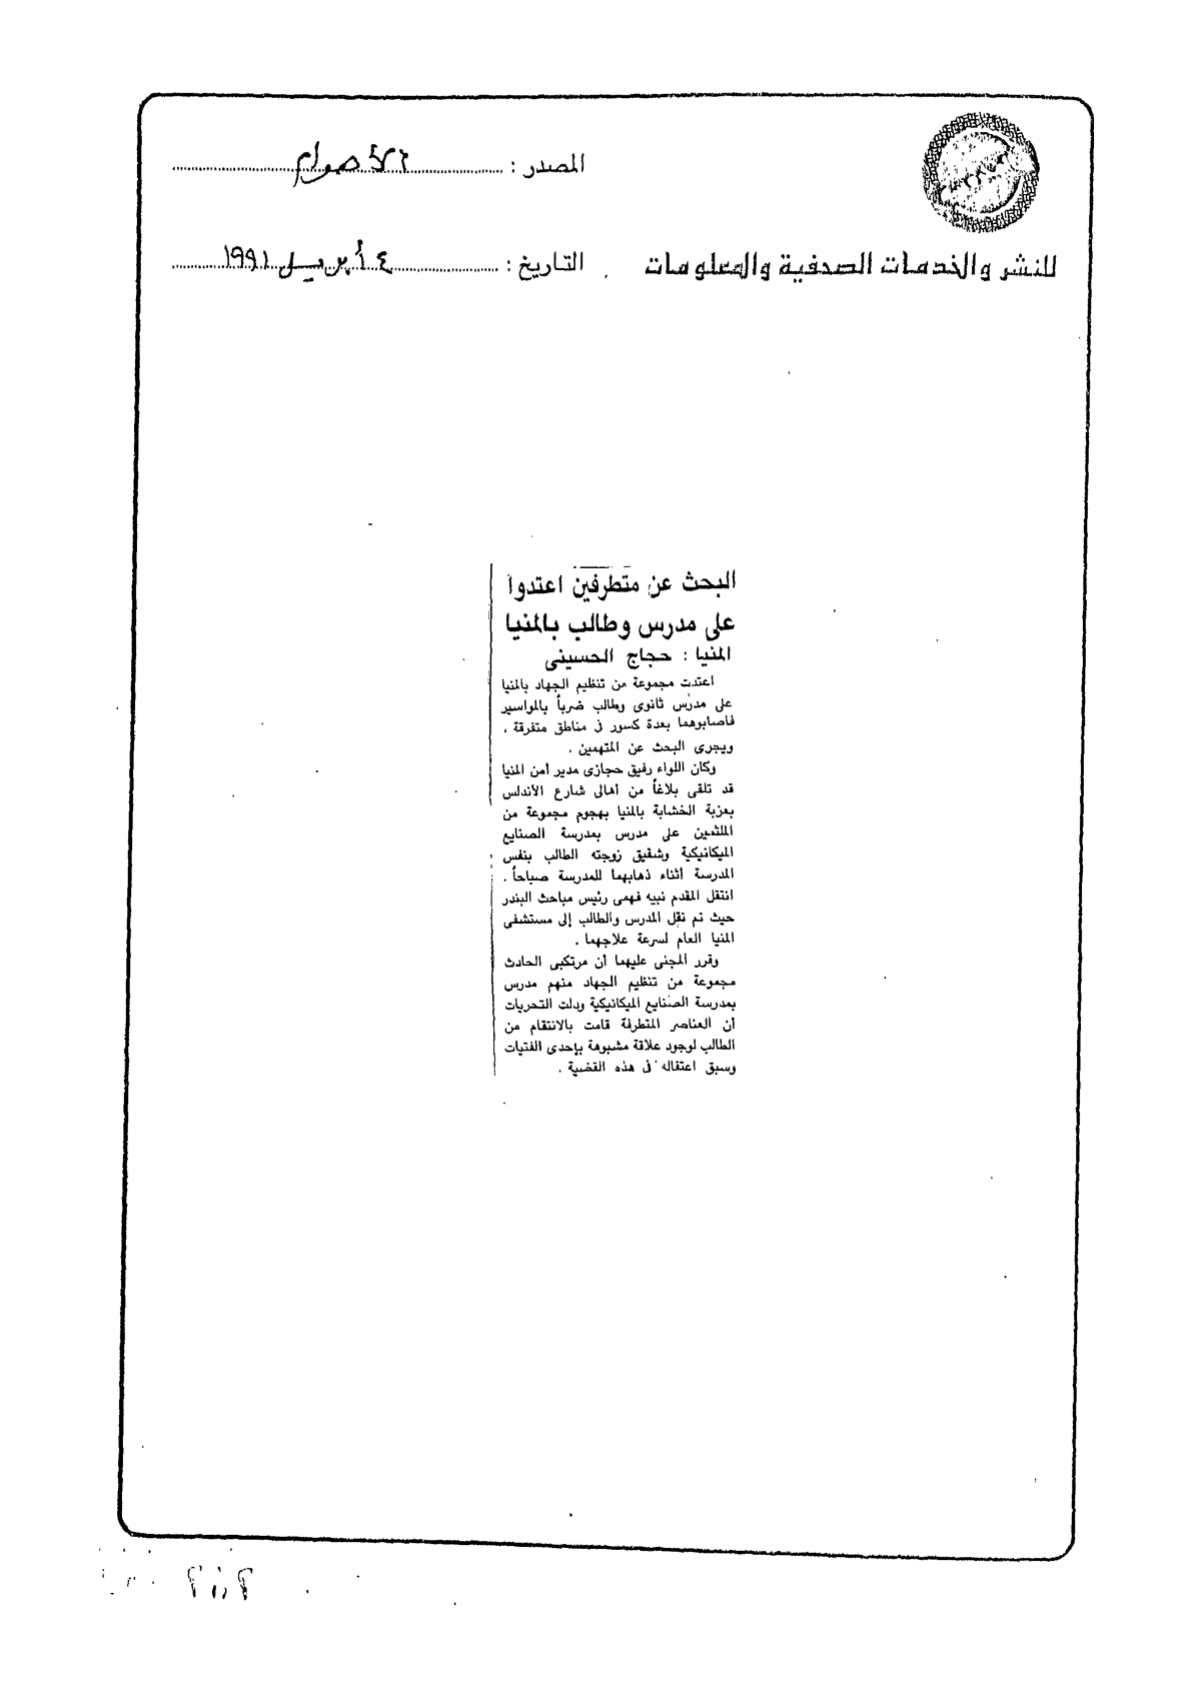 المصدر :
التاريخ : ٤ أبريل ١٩٩١
للنشر والخدمات الصحفية والمعلومات
البحث عن متطرفين اعتدوا
على مدرس وطالب بالمنيا
المنيا : حجاج الحسينى
اعتدت مجموعة من تنظيم الجهاد بالمنيا
على مدرس ثانوى وطالب ضرباً بالمواسير
فاصابوهما بعدة كسور فى مناطق متفرقة .
ويجرى البحث عن المتهمين .
وكان اللواء رفيق حجازى مدير أمن المنيا
قد تلقى بلاغاً من أهالى شارع الأندلس
بعزبة الخشابة بالمنيا بهجوم مجموعة من
الملثمين على مدرس بمدرسة الصنايع
الميكانيكية وشقيق زوجته الطالب بنفس
المدرسة أثناء ذهابهما للمدرسة صباحاً .
انتقل المقدم نبيه فهمى رئيس مباحث البندر
حيث تم نقل المدرس والطالب إلى مستشفى
المنيا العام لسرعة علاجهما .
وقرر المجنى عليهما أن مرتكبى الحادث
مجموعة من تنظيم الجهاد منهم مدرس
بمدرسة الصنايع الميكانيكية ودلت التحريات
أن العناصر المتطرفة قامت بالانتقام من
الطالب لوجود علاقة مشبوهة بإحدى الفتيات
وسبق اعتقاله فى هذه القضية .